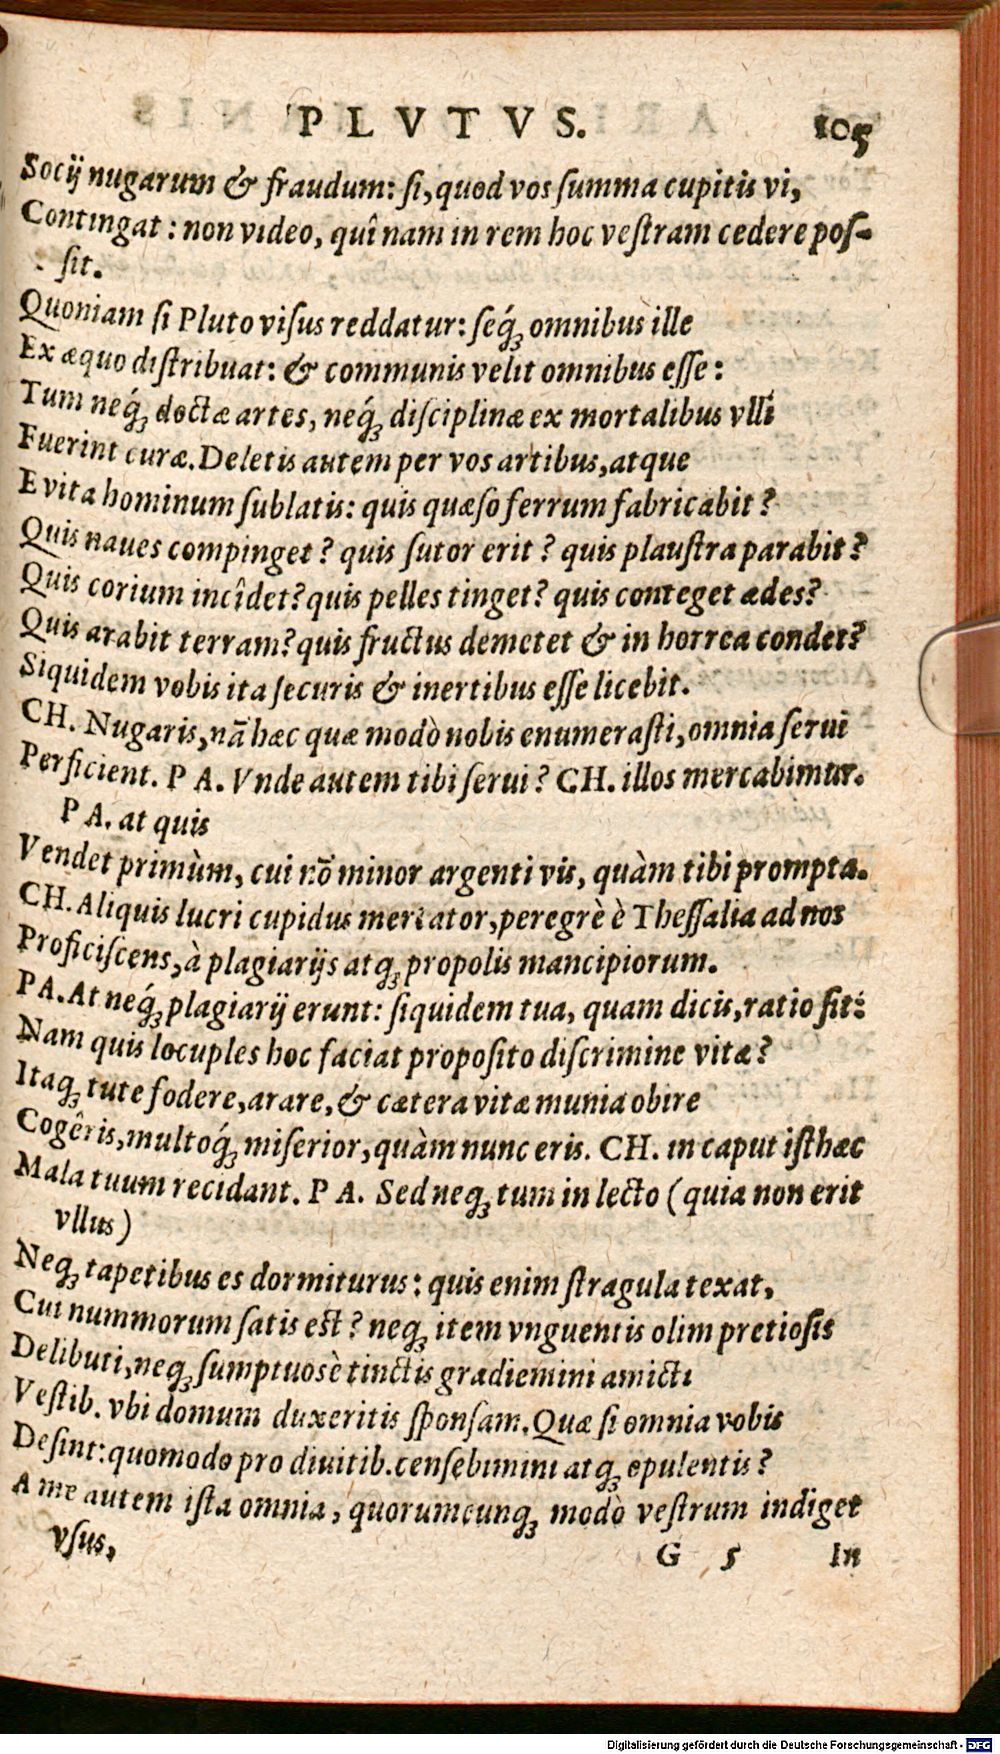 PLVTVS. 105
Socij nugarum & fraudum: si, quod vos summa cupitis vi,
Contingat: non video, quî nam in rem hoc vestram cedere pos-
sit.
Quoniam si Pluto visus reddatur: seq́ꝫ omnibus ille
Ex æquo distribuat: & communis velit omnibus esse:
Tum neq́ꝫ doctæ artes, neq́ꝫ disciplinæ ex mortalibus vlli
Fuerint curæ. Deletis autem per vos artibus, atque
E vita hominum sublatis: quis quæso ferrum fabricabit?
Quis naues compinget? quis sutor erit? quis plaustra parabit?
Quis corium incîdet? quis pelles tinget? quis conteget ædes?
Quis arabit terram? quis fructus demetet & in horrea condet?
Siquidem vobis ita securis & inertibus esse licebit.
CH. Nugaris, nã hæc quæ modò nobis enumerasti, omnia serui
Perficient. PA. Vnde autem tibi serui? CH. illos mercabimur.
PA. at quis
Vendet primùm, cui nõ minor argenti vis, quàm tibi prompta.
CH. Aliquis lucri cupidus mercator, peregrè è Thessalia ad nos
Proficiscens, à plagiarijs atqꝫ propolis mancipiorum.
PA. At neq́ꝫ plagiarij erunt: siquidem tua, quam dicis, ratio sit:
Nam quis locuples hoc faciat proposito discrimine vitæ?
Itaqꝫ tute fodere, arare, & cætera vitæ munia obire
Cogêris, multoq́ꝫ miserior, quàm nunc eris. CH. in caput isthæc
Mala tuum recidant. PA. Sed neqꝫ tum in lecto (quia non erit
vllus)
Neqꝫ tapetibus es dormiturus: quis enim stragula texat,
Cui nummorum satis est? neqꝫ item vnguentis olim pretiosis
Delibuti, neqꝫ sumptuosè tinctis gradiemini amicti
Vestib. vbi domum duxeritis sponsam. Quæ si omnia vobis
Desint: quomodo pro diuitib. censebimini atqꝫ opulentis?
A me autem ista omnia, quorumcunqꝫ modò vestrum indiget
vsus,
G 5 In
Digitalisierung gefördert durch die Deutsche Forschungsgemeinschaft - DFG